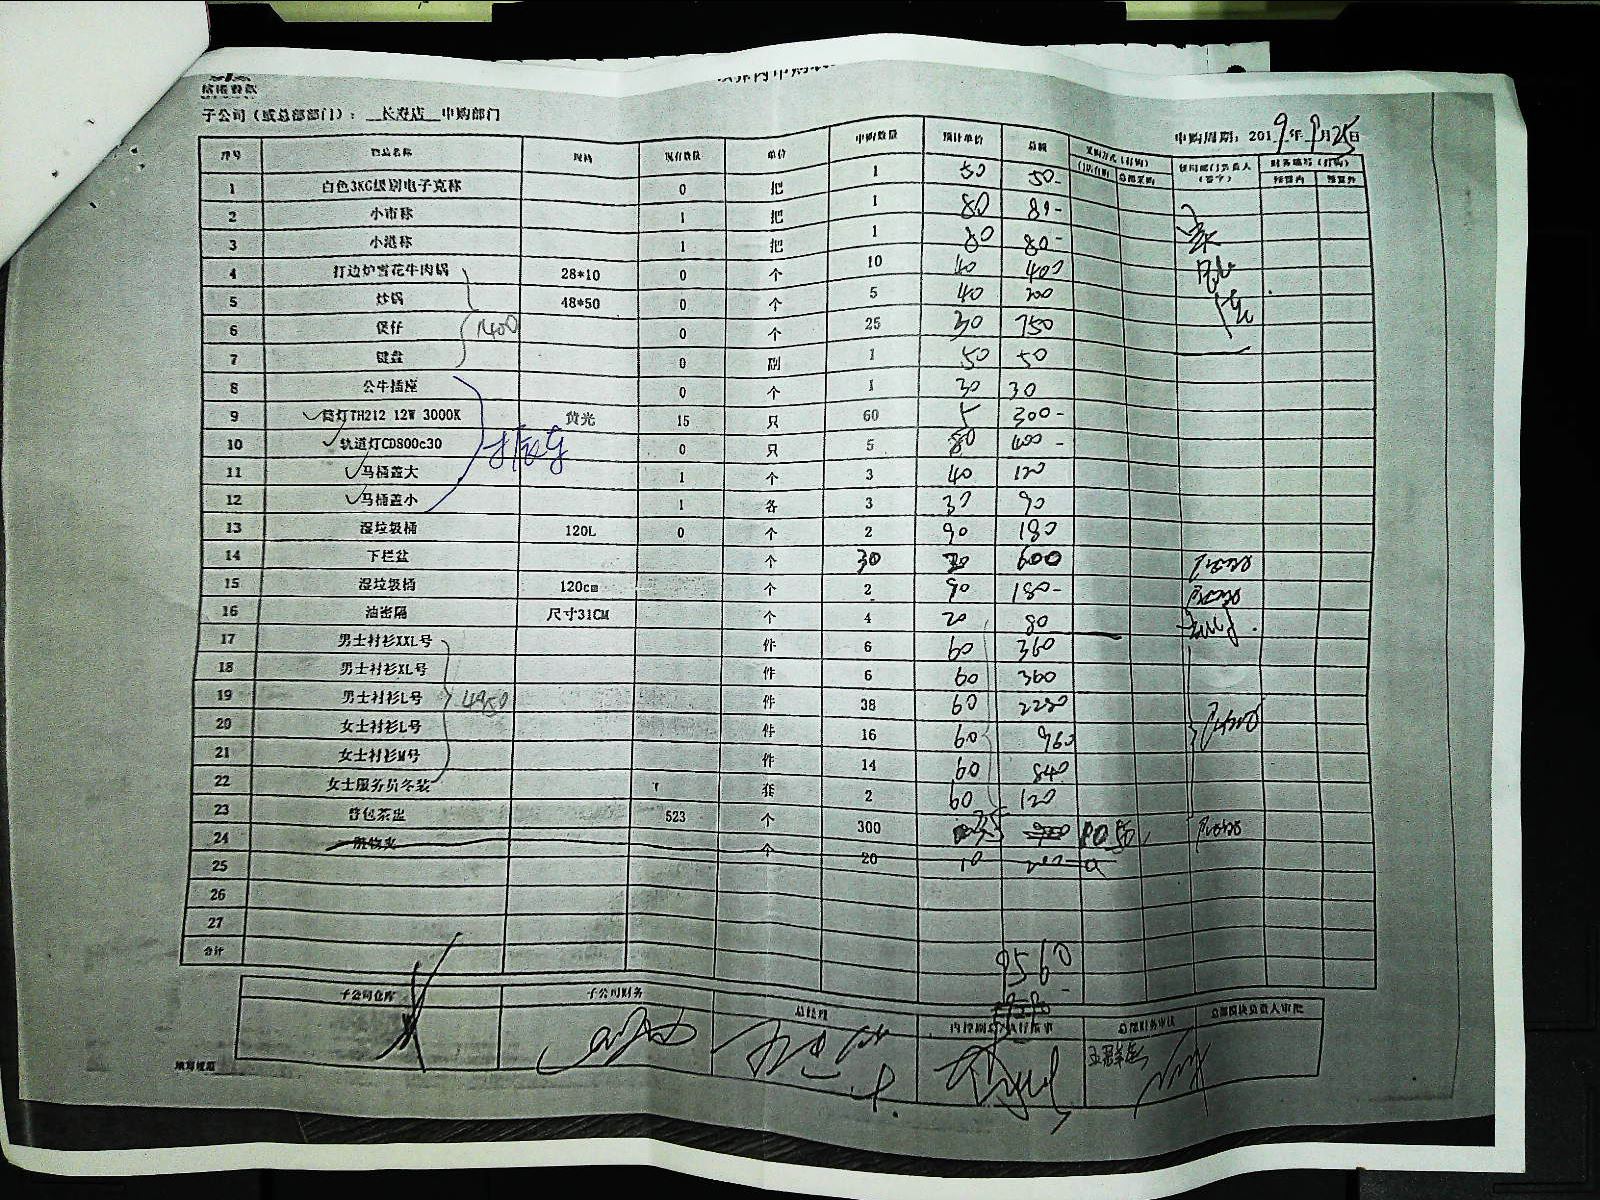 子公司（或总部部门）： 长寿店 申购部门
申购周期：2019年9月25日
序号 物品名称 规格 现存数量 单位 申购数量 预计单价 总额 采购方式（打钩） 使用部门负责人（签字） 财务填写（打钩）
门店自购 总部采购 预算内 预算外
1 白色3KG级别电子克称 0 把 1 50 50-
2 小市称 1 把 1 80 80-
3 小港称 1 把 1 80 80-
4 打边炉雪花牛肉锅 28*10 0 个 10 40 400
5 炒锅 48*50 0 个 5 40 200
6 煲仔 0 个 25 30 750
1400
7 键盘 0 副 1 50 50
8 公牛插座 0 个 1 30 30
9 筒灯TH212 12W 3000K 黄光 15 只 60 5 300-
10 轨道灯CD800c30 0 只 5 80 400-
11 马桶盖大 1 个 3 40 120
12 马桶盖小 1 各 3 30 90
13 湿垃圾桶 120L 0 个 2 90 180
14 下栏盆 个 30 20 600
15 湿垃圾桶 120cm 个 2 90 180-
16 油密隔 尺寸31CM 个 4 20 80
17 男士衬衫XXL号 件 6 60 360
18 男士衬衫XL号 件 6 60 360
19 男士衬衫L号 件 38 60 2280
20 女士衬衫L号 件 16 60 960
21 女士衬衫M号 件 14 60 840
22 女士服务员冬装 套 2 60 120
23 普包茶盅 523 个 300 3.5 1050
24 个 20 10
25
26
27
合计 9560
子公司仓库 子公司财务 总经理 总部财务审核 总部模块负责人审批
填写规范